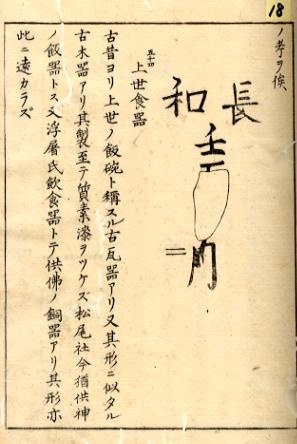 18
ノ考ヲ俟
長
和
壬
内
二
五十四
上世食器
古昔ヨリ上世ノ飯碗ト稱スル古瓦器アリ又其形ニ似タル
古木器アリ其製至テ質素漆ヲツケズ松尾社今猶供神
ノ飯器トス又浮屠氏飲食器トテ供佛ノ銅器アリ其形亦
此ニ遠カラズ